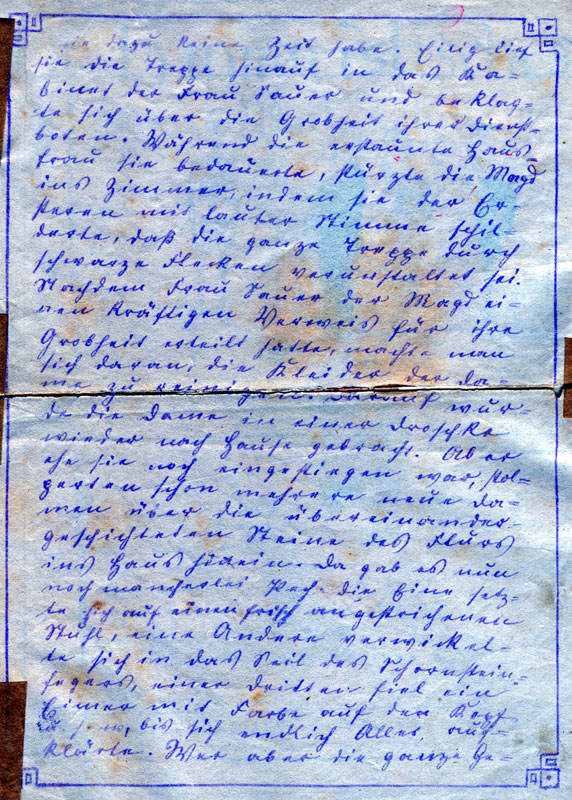 sie dazu keine Zeit habe. Eilig lief
sie die Treppe hinauf in das Ka-
binet der Frau Sauer und beklag-
te sich über die Grobheit ihrer Dienst-
boten. Während die erstaunte Haus-
frau sie bedauerte, stürzte die Magd
ins Zimmer, indem sie der Er-
steren mit lauter Stimme schil-
derte, daß die ganze Treppe durch
schwarze Flecken verunstaltet sei.
Nachdem Frau Sauer der Magd ei-
nen kräftigen Verweis für ihre
Grobheit erteilt hatte, machte man
sich daran, die Kleider der Da-
me zu reinigen. Darauf wur-
de die Dame in einer Droschke
wieder nach Hause gebracht. Aber
ehe sie noch eingestiegen war, stol-
perten schon mehrere neue Da-
men über die übereinander-
geschichteten Steine des Flurs
ins Haus hinein. Da gab es nun
noch mancherlei Pech. Die Eine setz-
te sich auf einen frisch angestrichenen
Stuhl, eine Andere verwickel-
te sich in das Seil des Schornstein-
fegers, einer dritten fiel ein
Eimer mit Farbe auf den Kopf
u.s.w., bis sich endlich Alles auf-
klärte. Wer aber die ganze Ge-